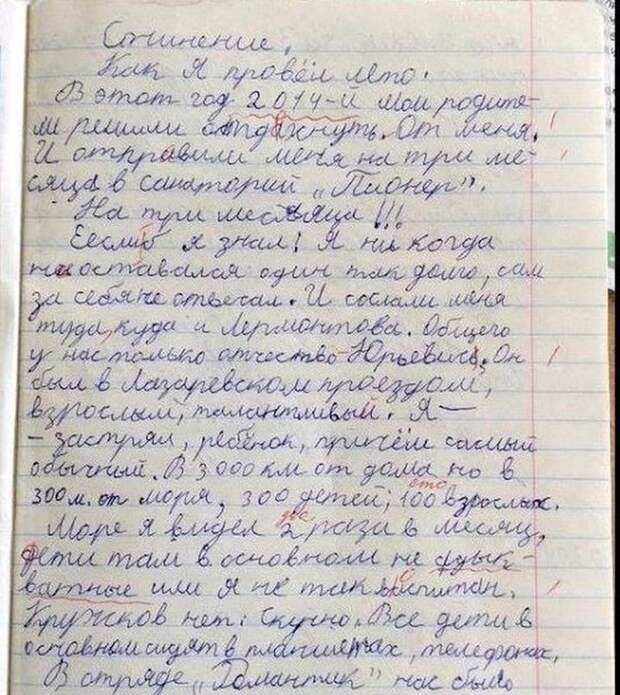 Сочинение.
Как я провёл лето.
В этот год 2014-й мои родите-
ли решили отдахнуть. От меня.
И отправили меня на три ме-
сяца в санаторий „Пионер".
На три месяца!!!
Еслиб я знал! Я ни когда
не оставался один так долго, сам
за себя не отвечал. И сослали меня
туда, куда и Лермонтова. Общего
у нас только отчество - Юрьевич. Он
был в Лазаревском проездом,
взрослый, талантливый. Я —
- застрял, ребёнок, причём самый
обычный. В 3000 км от дома но в
300 м. от моря, 300 детей, 100 взрослых.
сто
Море я видел 2 раза в месяц,
два
дети там в основном не адык-
ватные или я не так воспитан.
Кружков нет. Скучно. Все дети в
основном сидят в планшетах, телефонах.
В отряде „Романтик" нас было